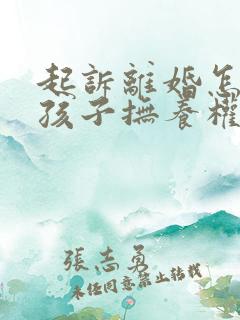 起訴離婚怎
孩子撫養權
張志勇
未任同意禁止轉載